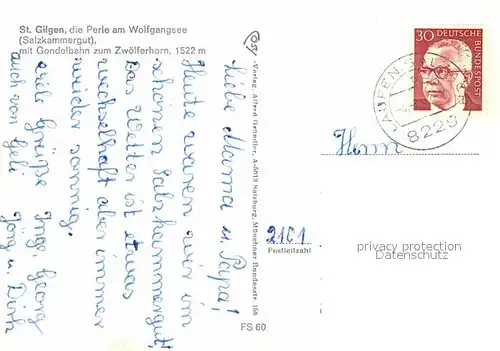 St. Gilgen, die Perle am Wolfgangsee
(Salzkammergut),
mit Gondelbahn zum Zwölferhorn, 1522 m
Liebe Mama u. Papa!
Heute waren wir im
schönen Salzkammergut!
Das Wetter ist etwas
wechselhaft aber immer
wieder sonnig.
Viele Grüße Inge, Georg
auch von Geli Jörg u. Dirk
Verlag Alfred Gründler, A-5013 Salzburg, Münchner Bundesstr. 156
FS 60
30 DEUTSCHE
BUNDESPOST
LAUFEN
8229
Herrn
2161
Postleitzahl
privacy protection
Datenschutz